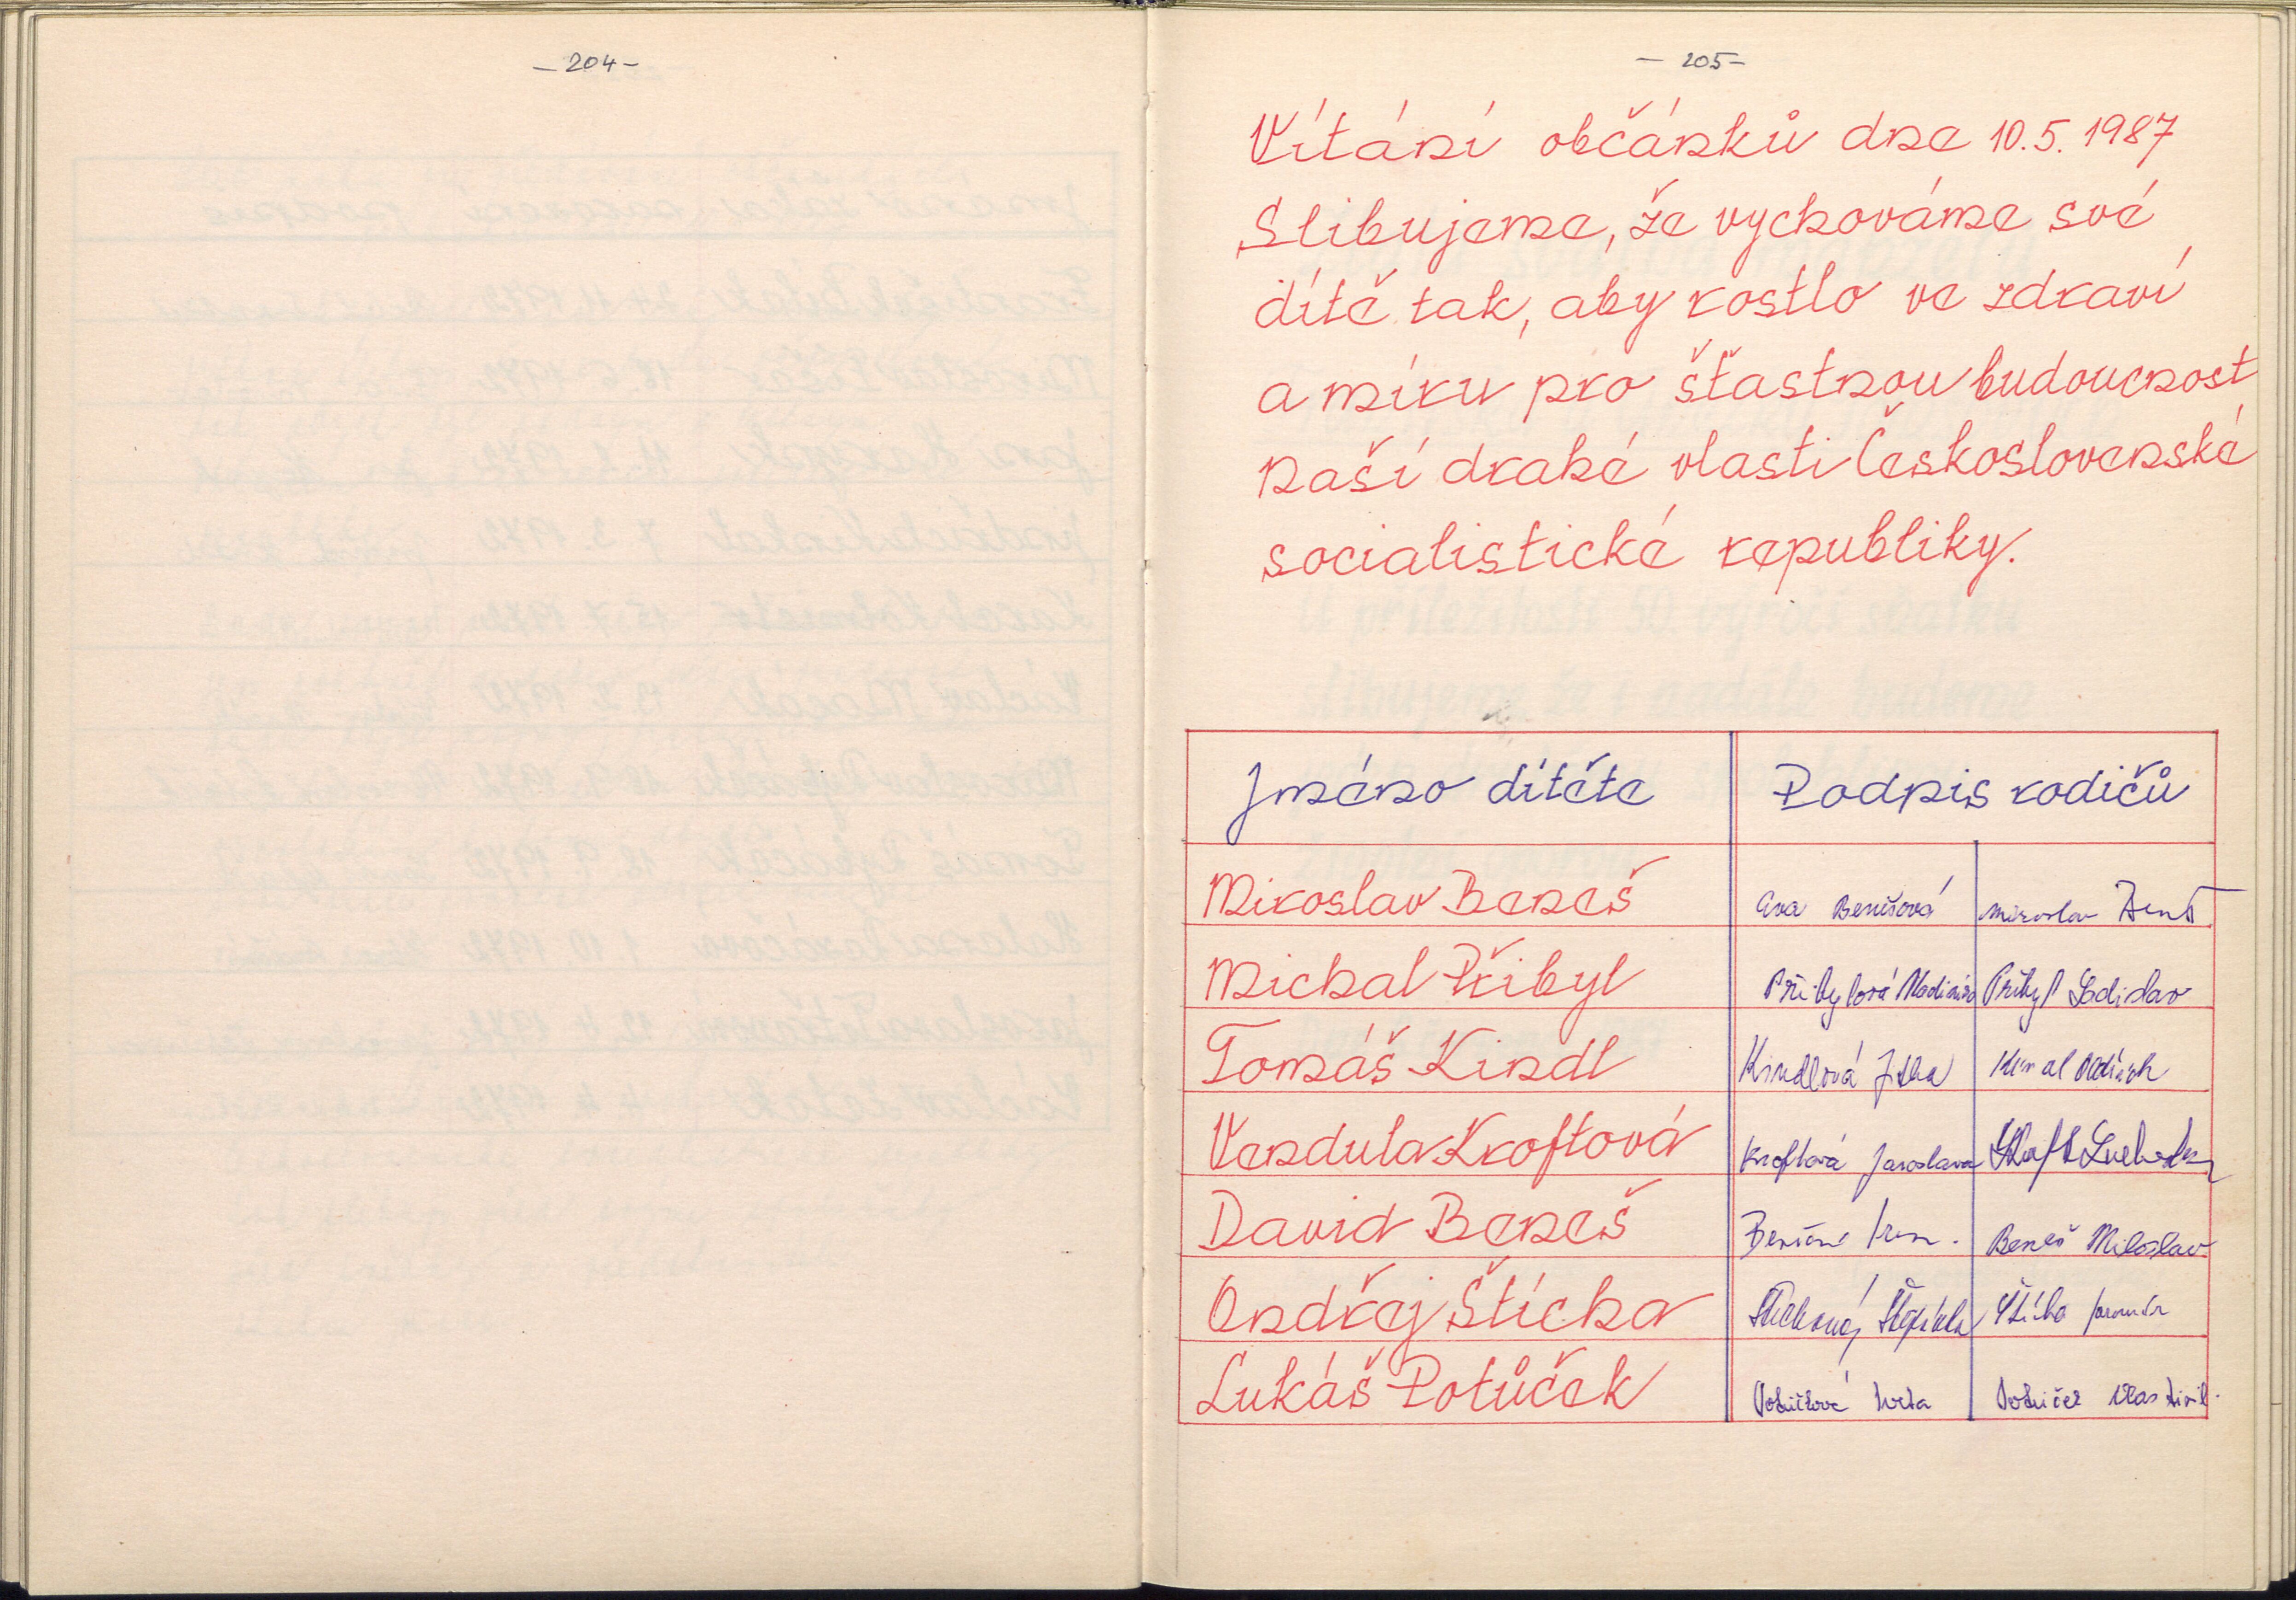 - 204 -
- 205 -
Vítání občánků dne 10.5. 1987
Slibujeme, že vychováme své
dítě tak, aby rostlo ve zdraví
a míru pro šťastnou budoucnost
naší drahé vlasti Československé
socialistické republiky.
Jméno dítěte Podpis rodičů
Miroslav Beneš Eva Benešová Miroslav Beneš
Michal Přibyl Přibylová Vladimíra Přibyl Ladislav
Tomáš Kindl Kindlová Jitka Kindl Oldřich
Vendula Kroftová Kroftová Jaroslava Kroft
David Beneš Benešová Beneš Miloslav
Ondřej Štícha Štichová Štěpánka Štícha Jaromír
Lukáš Potůček Potůčková Iveta Potůček Vlastimil